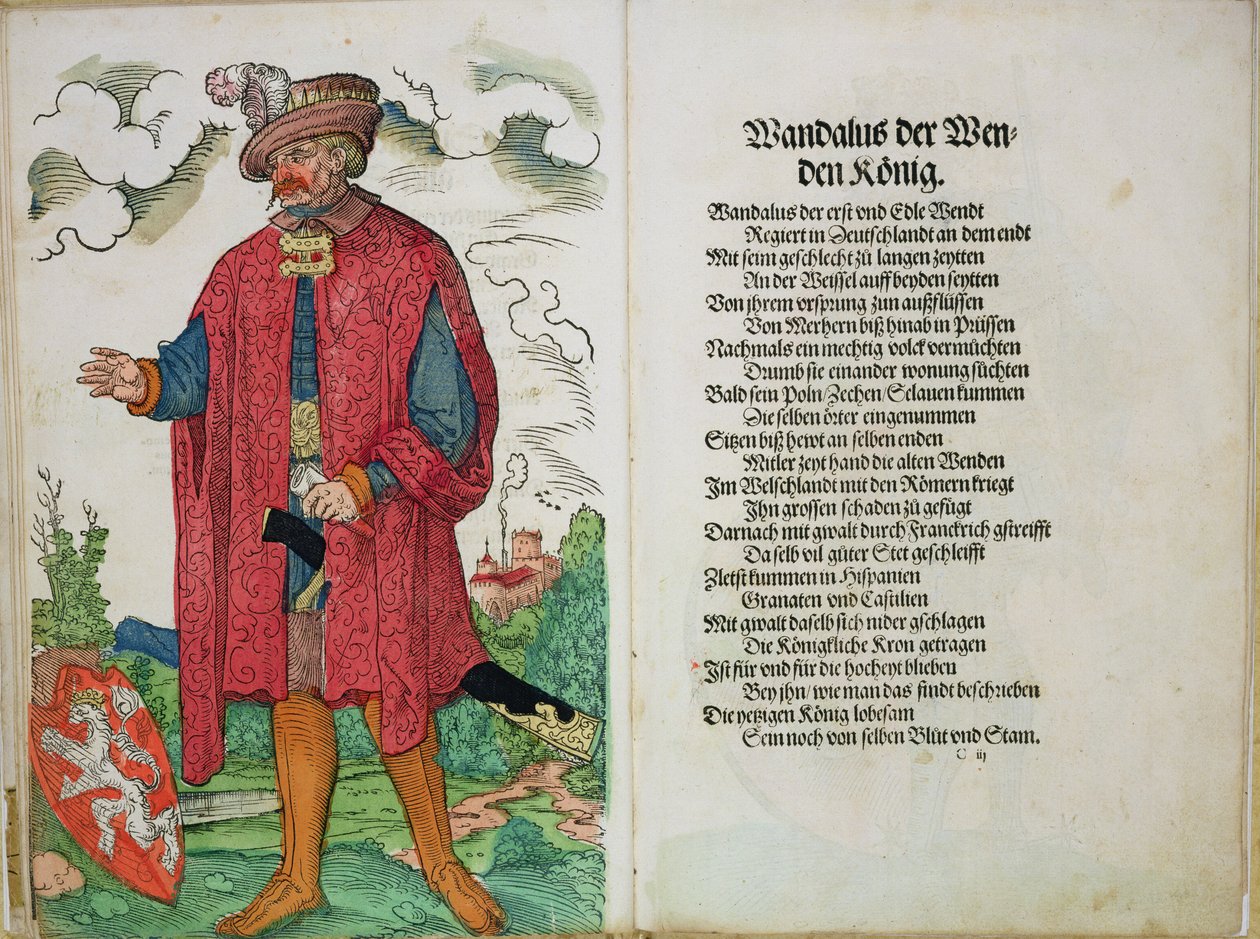 Wandalus der Wen⸗
den König.
Wandalus der erst vnd Edle Wendt
Regiert in Deutschlandt an dem endt
Mit seim geschlecht zů langen zeytten
An der Weissel auff beyden seytten
Von jhrem vrsprung zun außflüssen
Von Merhern biß hinab in Prüssen
Nachmals ein mechtig volck vermůchten
Drumb sie einander wonung sůchten
Bald sein Poln/Zechen/Selauen kummen
Die selben örter eingenummen
Sitzen biß hewt an selben enden
Mitler zeyt hand die alten Wenden
Im Welschlandt mit den Römern kriegt
Jhn grossen schaden zů gefügt
Darnach mit gwalt durch Franckrich gstreifft
Da selb vil gůter Stet geschleifft
Zletst kummen in Hispanien
Granaten vnd Castilien
Mit gwalt daselb sich nider gschlagen
Die Königkliche Kron getragen
Ist für vnd für die hocheyt blieben
Bey jhn/ wie man das findt beschrieben
Die yetzigen König lobesam
Sein noch von selben Blůt vnd Stam.
C iij